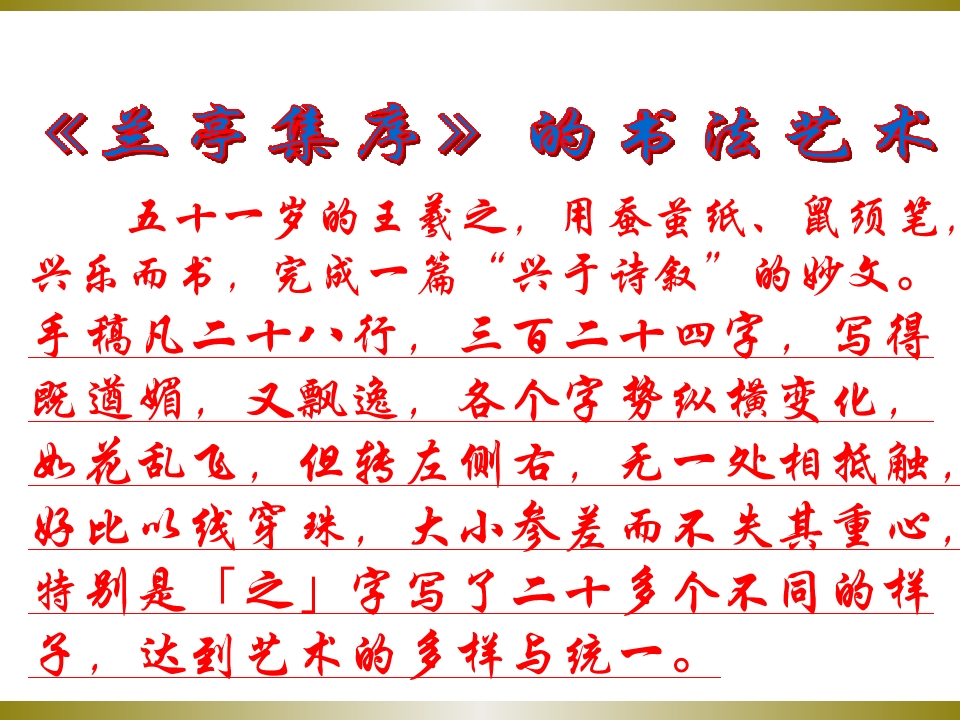 《兰亭集序》的书法艺术
五十一岁的王羲之，用蚕茧纸、鼠须笔，
兴乐而书，完成一篇“兴于诗叙”的妙文。
手稿凡二十八行，三百二十四字，写得
既遒媚，又飘逸，各个字势纵横变化，
如花乱飞，但转左侧右，无一处相抵触，
好比以线穿珠，大小参差而不失其重心，
特别是「之」字写了二十多个不同的样
子，达到艺术的多样与统一。